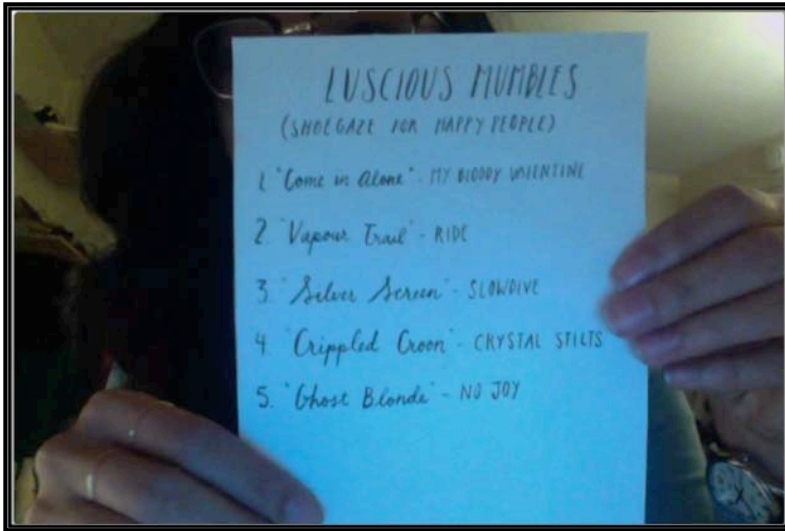 LUSCIOUS MUMBLES
(SHOEGAZE FOR HAPPY PEOPLE)
1. "Come in Alone" - MY BLOODY VALENTINE
2. "Vapour Trail" - RIDE
3. "Silver Screen" - SLOWDIVE
4. "Crippled Croon" - CRYSTAL STILTS
5. "Ghost Blonde" - NO JOY